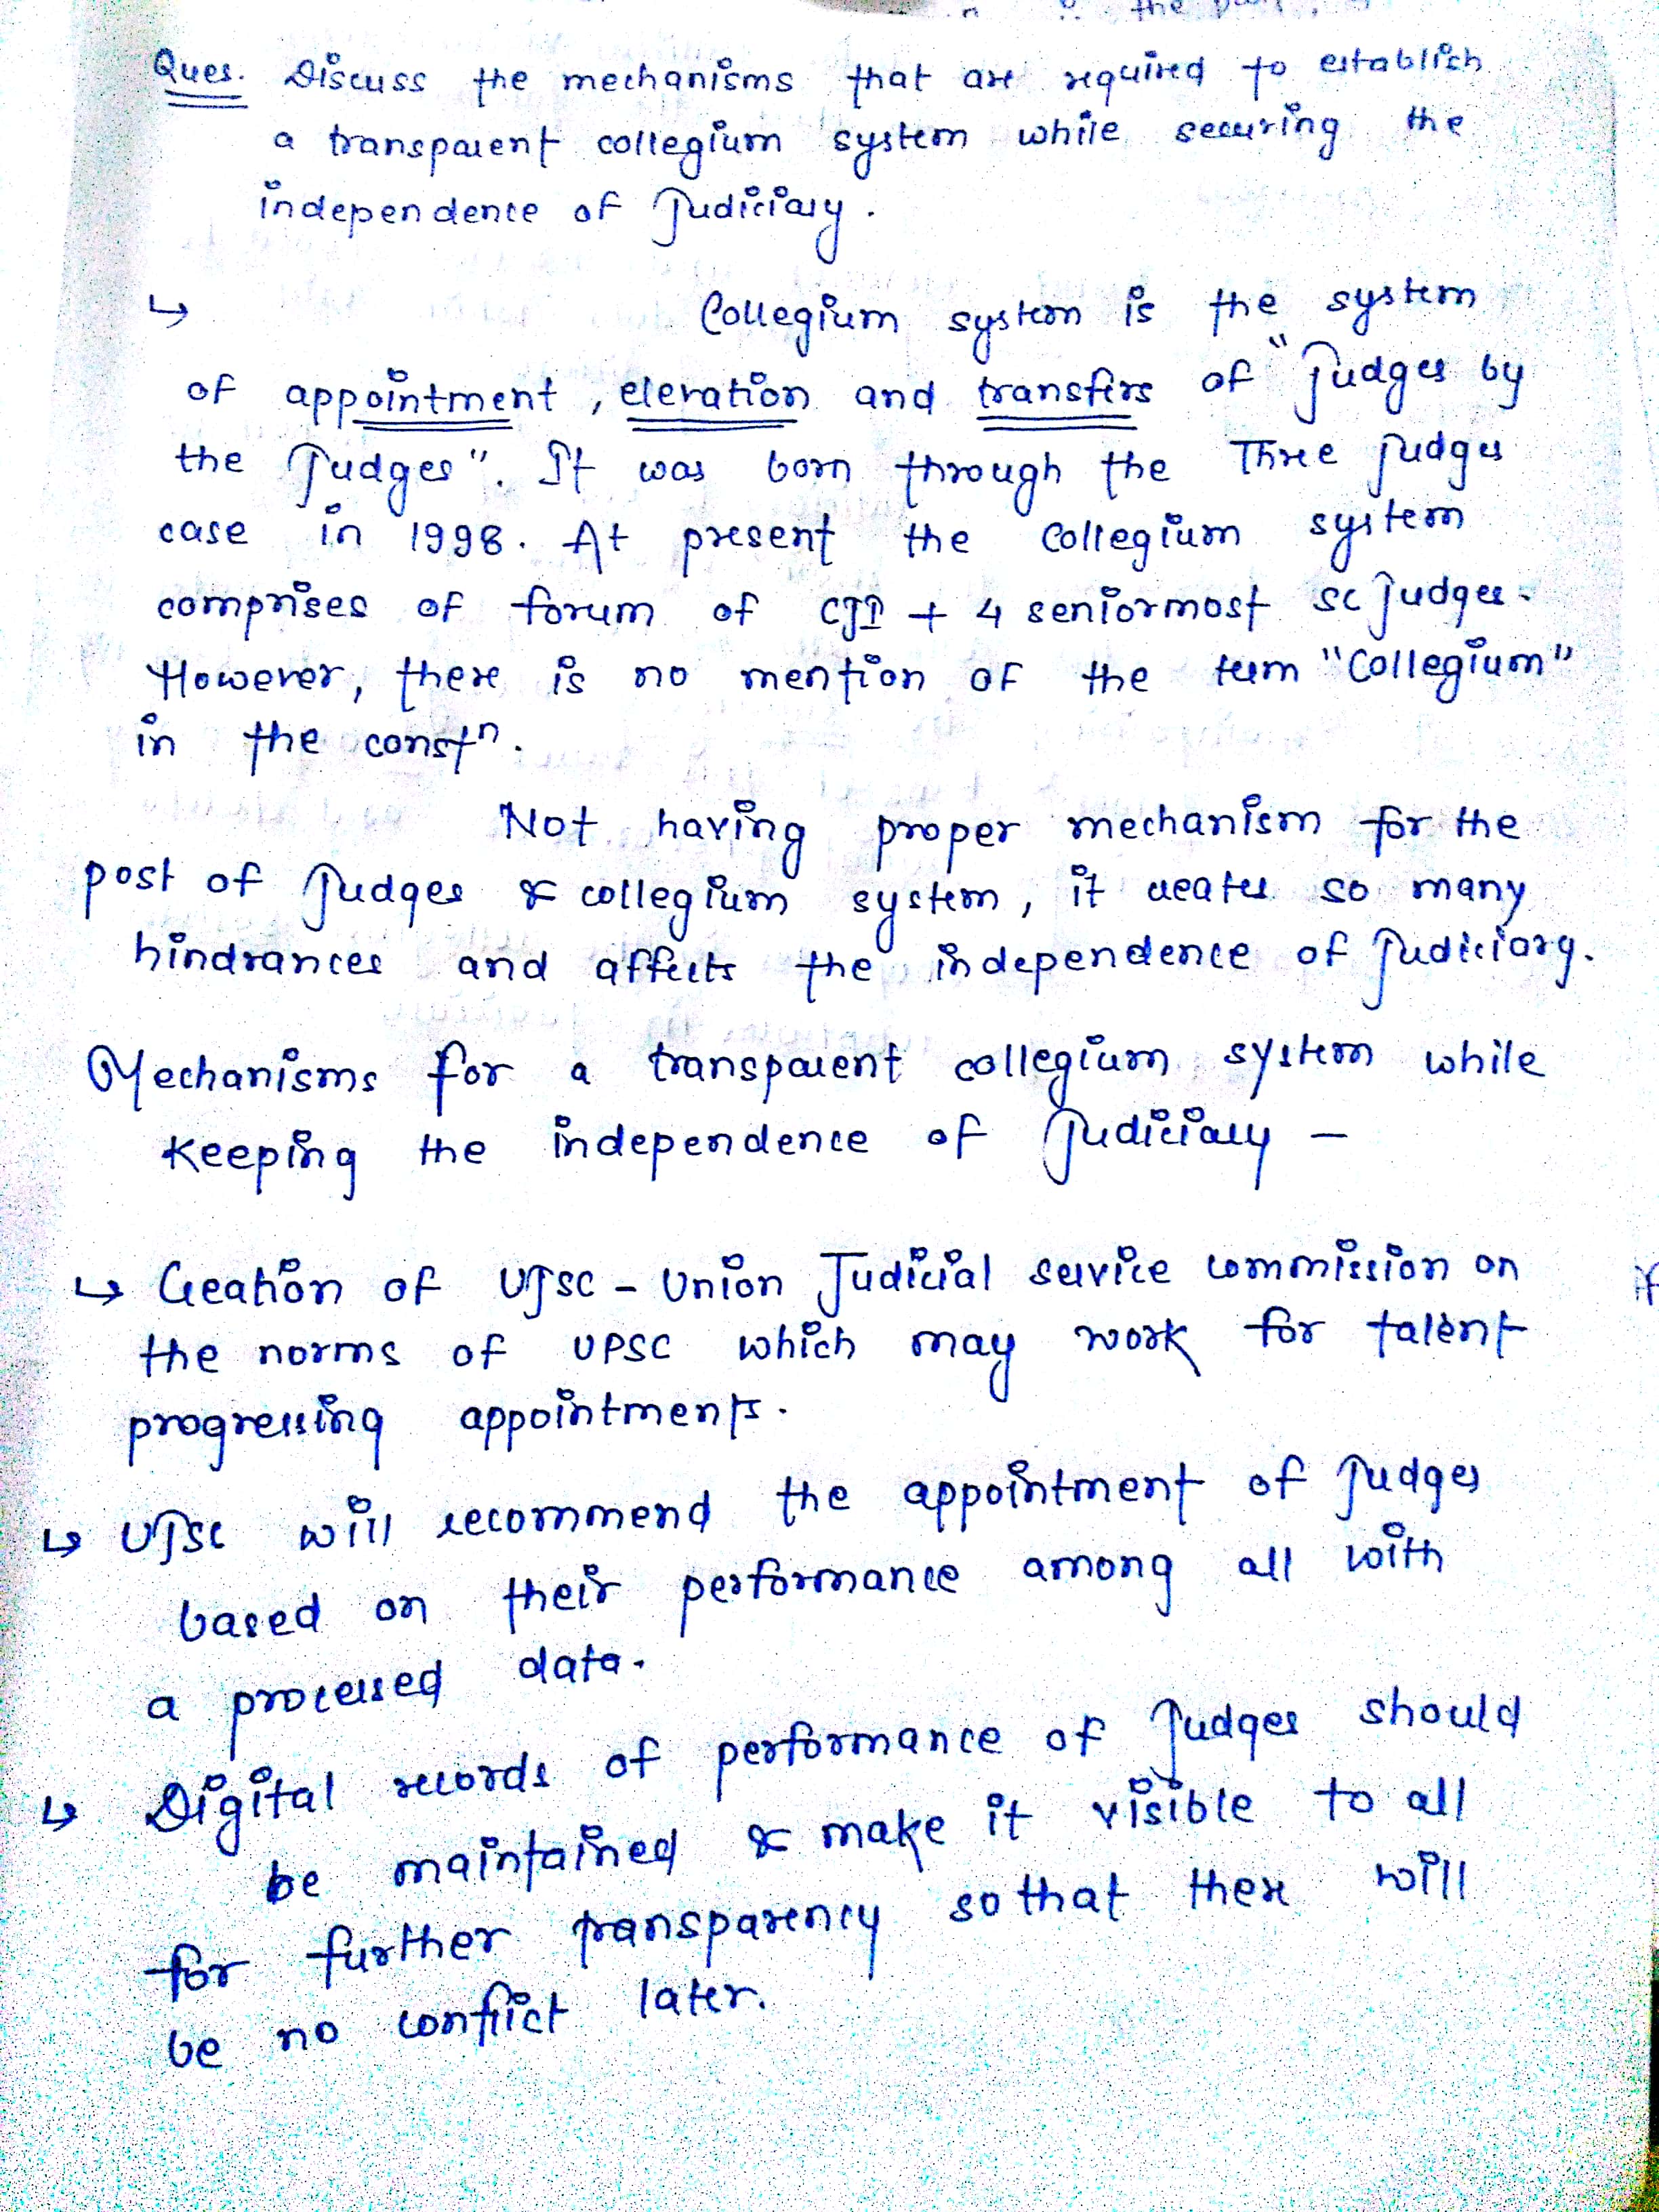 the
Ques. Discuss the mechanisms that are required to establish
a transparent collegium system while securing the
independence of Judiciary.
↳ Collegium system is the system
of appointment, elevation and transfers of "Judges by
the Judges". It was born through the Three judges
case in 1998. At present the Collegium system
comprises of forum of CJI + 4 seniormost SC Judges.
However, there is no mention of the term "Collegium"
in the constⁿ.
Not having proper mechanism for the
post of Judges & collegium system, it creates so many
hindrances and affects the independence of Judiciary.
Mechanisms for a transparent collegium system while
keeping the independence of Judiciary –
↳ Creation of UJSC - Union Judicial service commission on
the norms of UPSC which may work for talent
progressing appointments.
↳ UJSC will recommend the appointment of Judges
based on their performance among all with
a processed data.
↳ Digital records of performance of Judges should
be maintained & make it visible to all
for further transparency so that there will
be no conflict later.
if